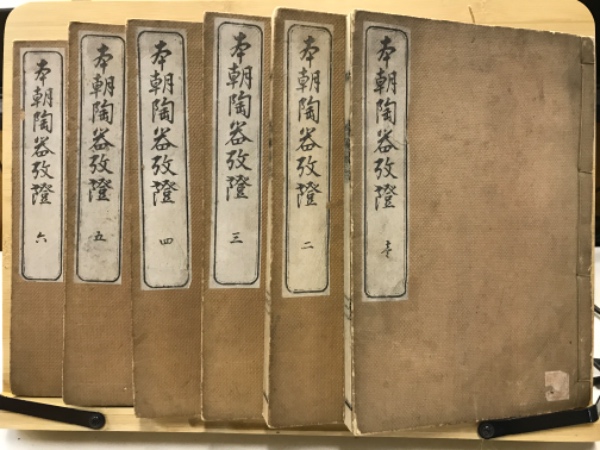 本朝陶器攷證
壱
本朝陶器攷證
二
本朝陶器攷證
三
本朝陶器攷證
四
本朝陶器攷證
五
本朝陶器攷證
六